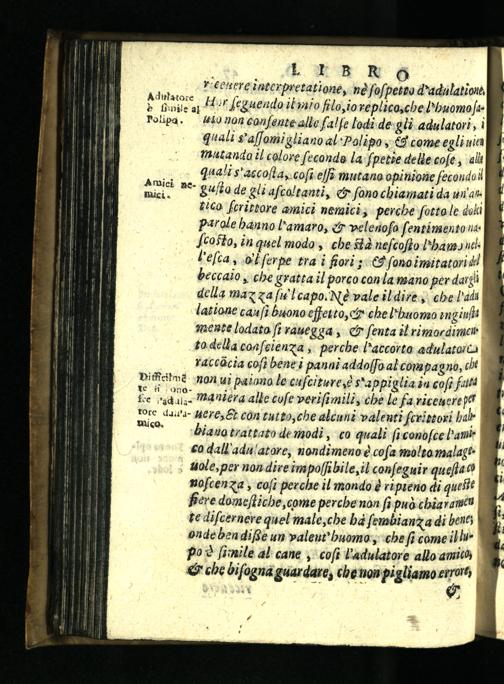 LIBRO
riceuere interpretatione, nè sospetto d'adulatione.
Adulatore
è simile al
Polipo.
Hor seguendo il mio filo, io replico, che l'huomo sa-
uio non consente alle false lodi de gli adulatori, i
quali s'assomigliano al Polipo, & come egli uien
mutando il colore secondo la spetie delle cose, alle
quali s'accosta, cosi essi mutano opinione secondo il
Amici ne-
mici.
gusto de gli ascoltanti, & sono chiamati da un'an-
tico scrittore amici nemici, perche sotto le dolci
parole hanno l'amaro, & velenoso sentimento na-
scosto, in quel modo, che stà nescosto l'hamo nel-
l'esca, o'l serpe tra i fiori; & sono imitatori del
beccaio, che gratta il porco con la mano per dargli
della mazza su'l capo. Nè vale il dire, che l'adu
latione causi buono effetto, & che l'huomo ingiusta
mente lodato si rauegga, & senta il rimordimen-
to della conscienza, perche l'accorto adulatore
raccōcia cosi bene i panni addosso al compagno, che
Difficilmē
te si cono-
sce l'adula-
tore dall'a-
mico.
non ui paiono le cusciture, è s'appiglia in cosi fatta
maniera alle cose verisimili, che le fa riceuere per
uere, Et con tutto, che alcuni valenti scrittori hab-
biano trattato de modi, co quali si conosce l'ami-
co dall'adulatore, nondimeno è cosa molto malage-
uole, per non dire impossibile, il conseguir questa co
noscenza, cosi perche il mondo è ripieno di queste
fiere domestiche, come perche non si può chiaramen
te discernere quel male, che hà sembianza di bene,
onde ben disse un valent'huomo, che si come il lu-
po è simile al cane, cosi l'adulatore allo amico,
& che bisogna guardare, che non pigliamo errore,
&